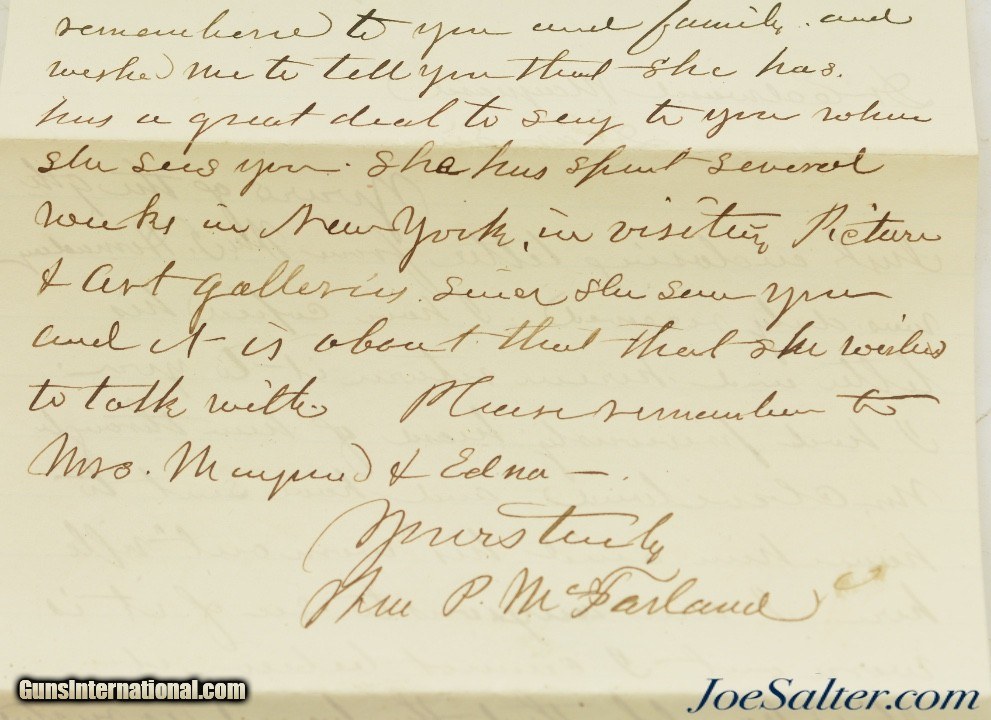 remembered to you and family. and
wished me to tell you that she has.
has a great deal to say to you when
she sees you. she has spent several
weeks in New York, in visiting Picture
& Art galleries since she saw you
and it is about that that she wishes
to talk with. Please remember to
Mrs. Maynard & Edna —.
Yours truly
P. McFarland
GunsInternational.com
JoeSalter.com